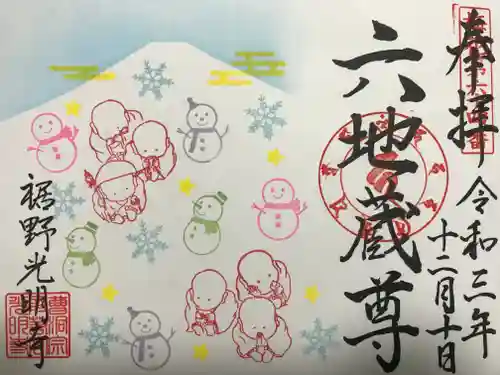 奉拝
令和三年
十二月十日
六地蔵尊
裾野光明寺
曹洞宗